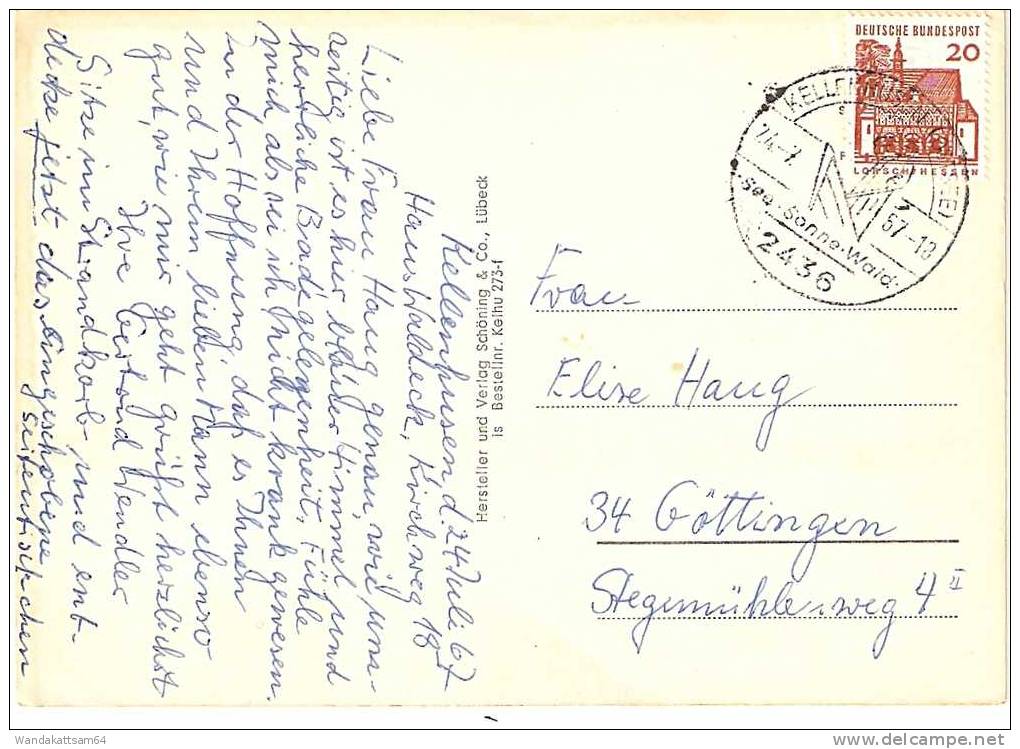 Kellenhusen d. 24 Juli 67
Haus Waldeck, Kirchweg 18
Liebe Frau Haug genau, wie uns-
zeitig ist es hier blauer Himmel und
herrliche Badegelegenheit, Fühle
mich als sei ich nicht krank gewesen.
In der Hoffnung, daß es Ihnen
und Ihrem lieben Mann ebenso
gut, wie mir geht grüßt herzlichst
Ihre Wendler
Sitze im Strandkorb und ent-
decke jetzt das eingeschobene
Seitentischchen
Hersteller und Verlag Schöning & Co., Lübeck
Is Bestellnr. Kelhu 273-f
DEUTSCHE BUNDESPOST
20
LORSCH/HESSEN
24.-7. 67-18
See-Sonne-Wald.
2436
Frau
Elise Haug
34 Göttingen
Stegemühlenweg 4 II
Wandakattsam64
http://www.delcampe.net